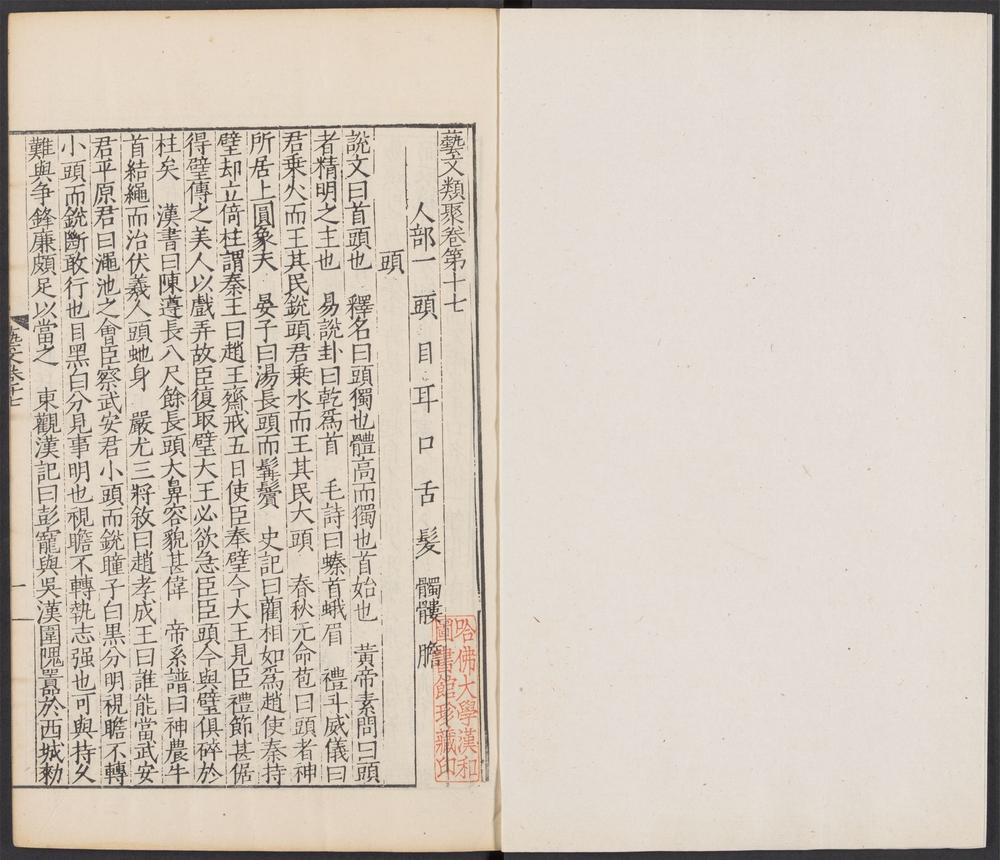 藝文類聚卷第十七
人部一 頭 目 耳 口 舌 髮 髑髏 膽
頭
說文曰首頭也 釋名曰頭獨也體高而獨也首始也 黃帝素問曰頭
者精明之主也 易說卦曰乾爲首 毛詩曰螓首蛾眉 禮斗威儀曰
君乘火而王其民銳頭君乘水而王其民大頭 春秋元命苞曰頭者神
所居上圓象天 晏子曰湯長頭而髯鬢 史記曰藺相如爲趙使秦持
璧却立倚柱謂秦王曰趙王齋戒五日使臣奉璧今大王見臣禮節甚倨
得璧傳之美人以戲弄故臣復取璧大王必欲急臣臣頭今與璧俱碎於
柱矣 漢書曰陳遵長八尺餘長頭大鼻容貌甚偉 帝系譜曰神農牛
首結繩而治伏羲人頭虵身 嚴尤三將敘曰趙孝成王曰誰能當武安
君平原君曰澠池之會臣察武安君小頭而銳瞳子白黑分明視瞻不轉
小頭而銳斷敢行也目黑白分見事明也視瞻不轉執志强也可與持久
難與爭鋒廉頗足以當之 東觀漢記曰彭寵與吳漢圍隗囂於西城勑
藝文卷十七
一
哈佛大學漢和
圖書館珍藏印